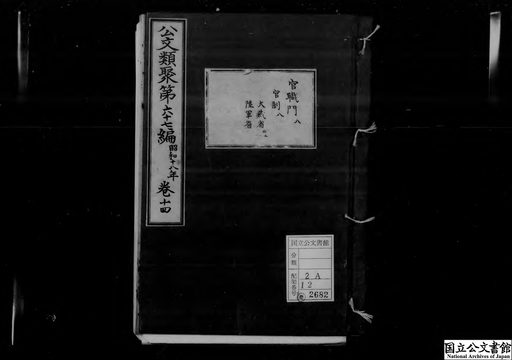 公文類聚第六十七編昭和十八年巻十四
官職門八
官制八
大蔵省
陸軍省
国立公文書館
分類
配架番号
2A
12
2682
国立公文書館
National Archives of Japan